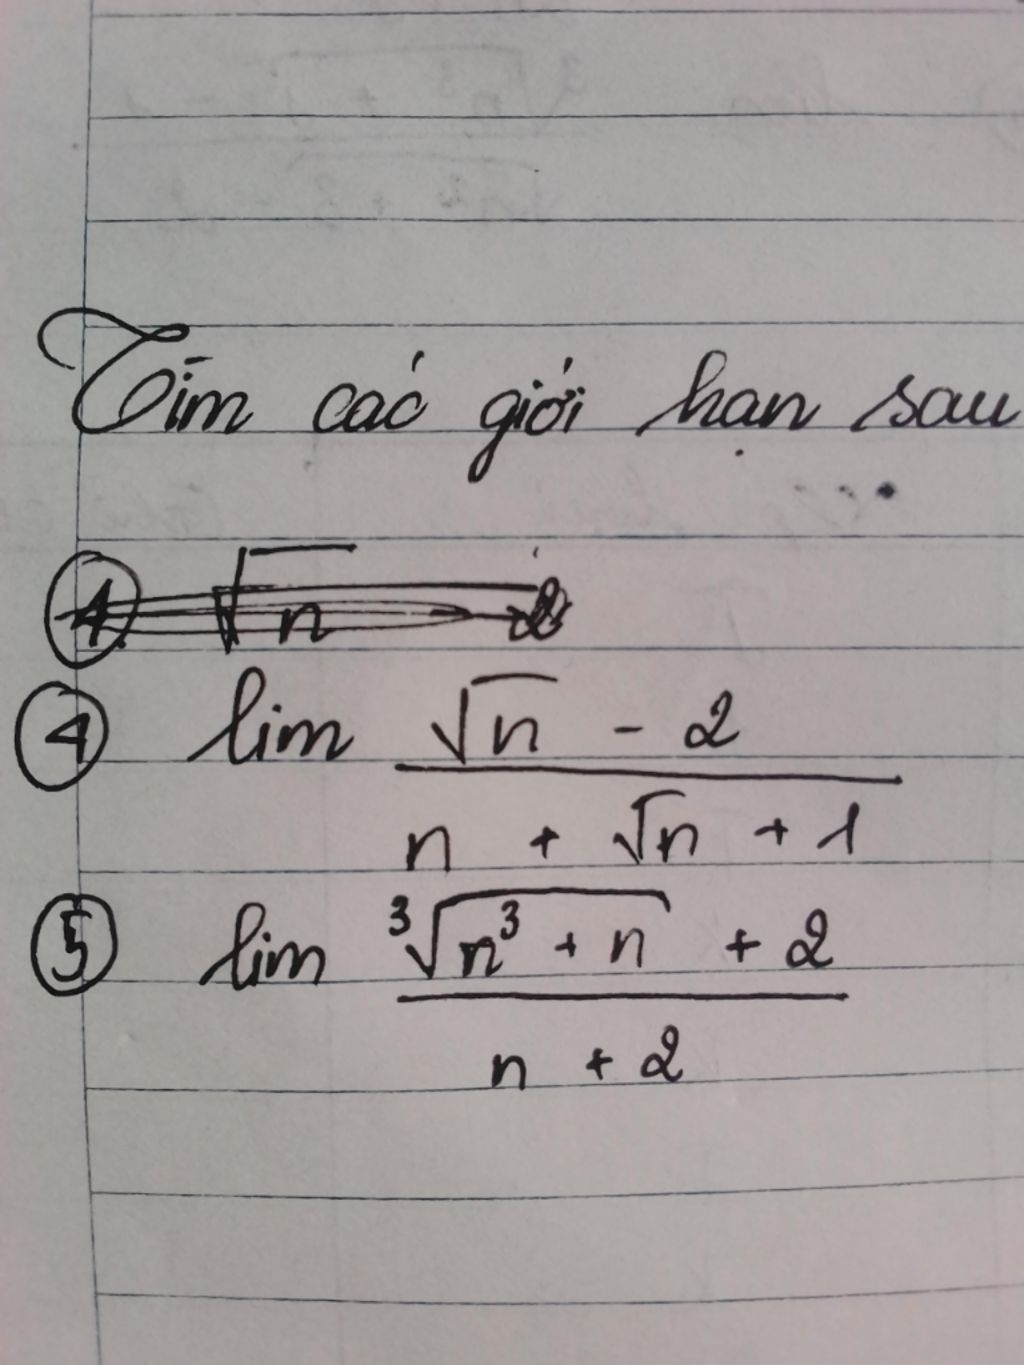 Tìm các giới hạn sau
④ lim (√n - 2)/(n + √n + 1)
⑤ lim (³√(n³ + n) + 2)/(n + 2)